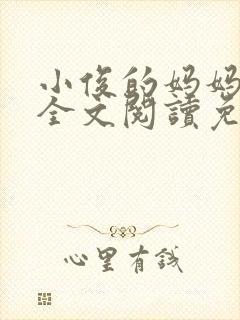 小俊的妈妈
全文閱讀免
心里有钱